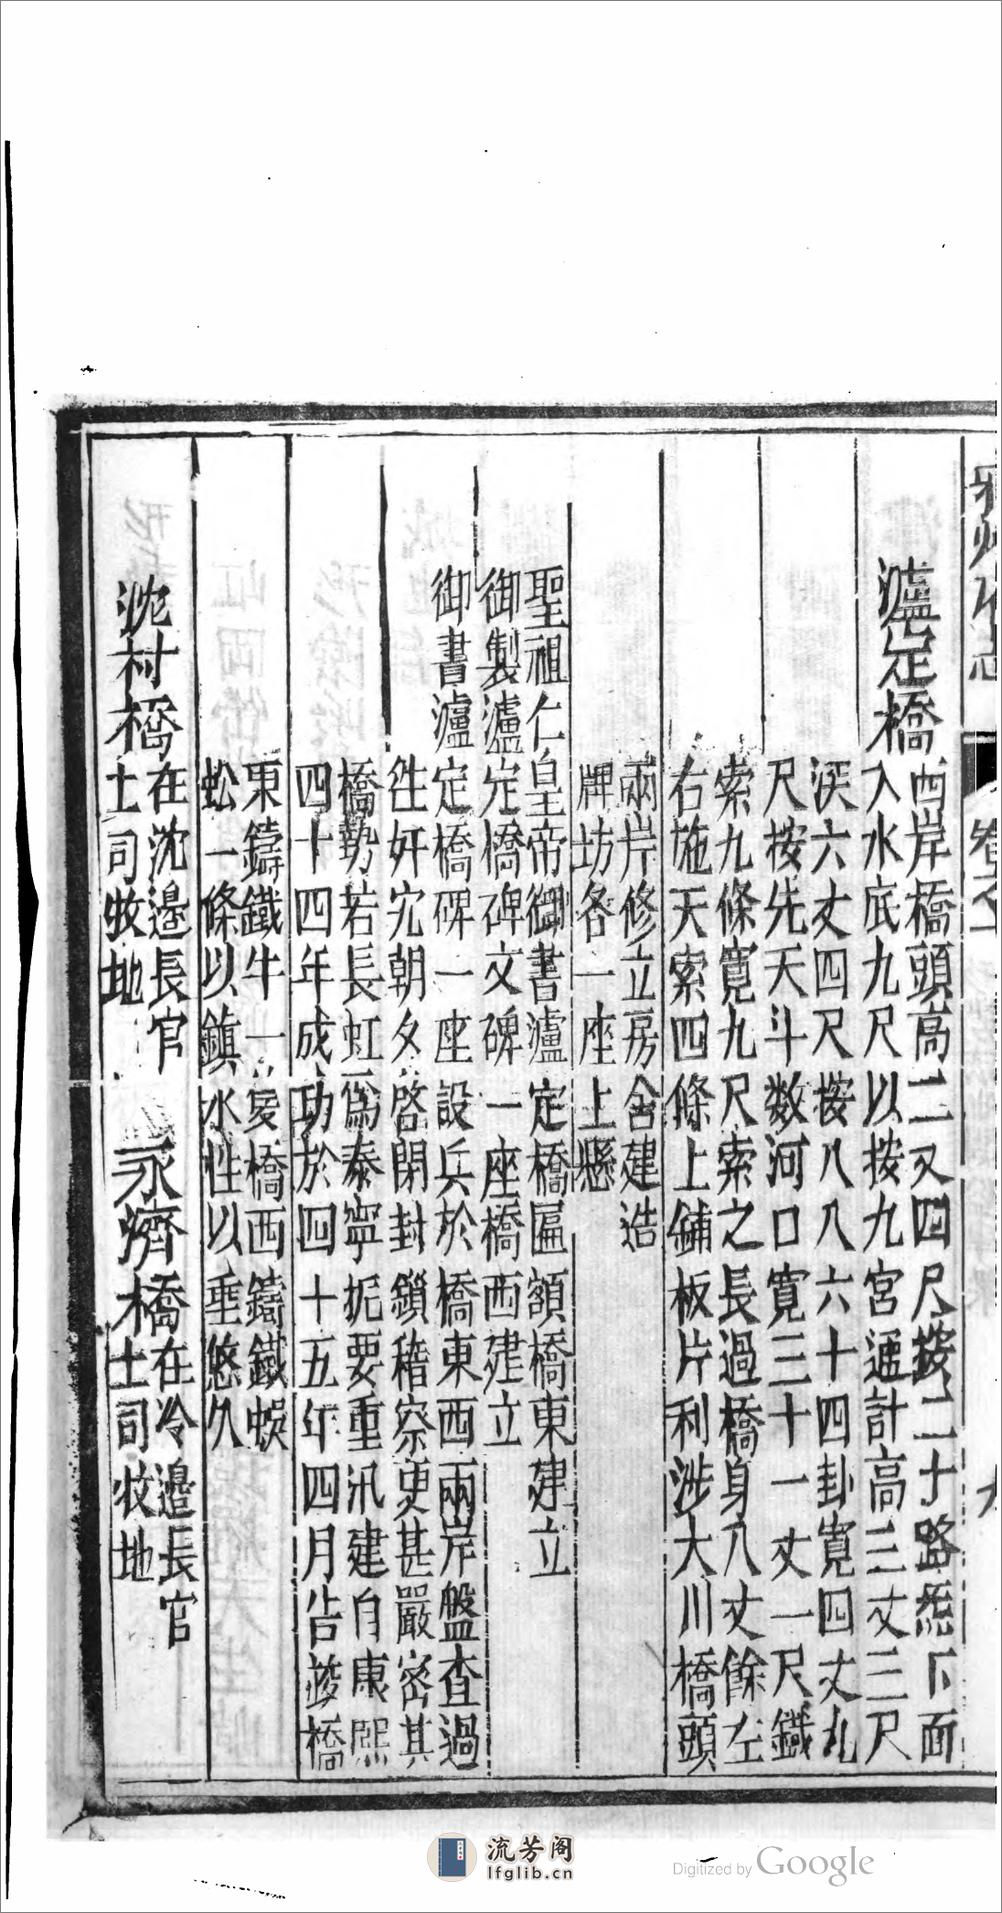 瀘定橋
西岸橋頭高二丈四尺按二十路炁下面
入水底九尺以按九宮通計高三丈三尺
深六丈四尺按八八六十四卦寬四丈九
尺按先天斗数河口寬三十一丈一尺鐵
索九條寬九尺索之長過橋身八丈餘左
右施天索四條上鋪板片利涉大川橋頭
兩岸修立房舍建造
牌坊各一座上懸
聖祖仁皇帝御書瀘定橋匾額橋東建立
御製瀘定橋碑文碑一座橋西建立
御書瀘定橋碑一座設兵於橋東西兩岸盤查過
徃奸宄朝夕啓閉封鎖稽察更甚嚴密其
橋勢若長虹為泰寧扼要重汛建自康熙
四十四年成功於四十五年四月告竣橋
東鑄鐵牛一复橋西鑄鐵蜈
蚣一條以鎮水性以垂悠久
沈村橋
在沈邉長官
土司牧地
永濟橋
在冷邉長官
土司牧地
流芳阁
lfglib.cn
Digitized by Google